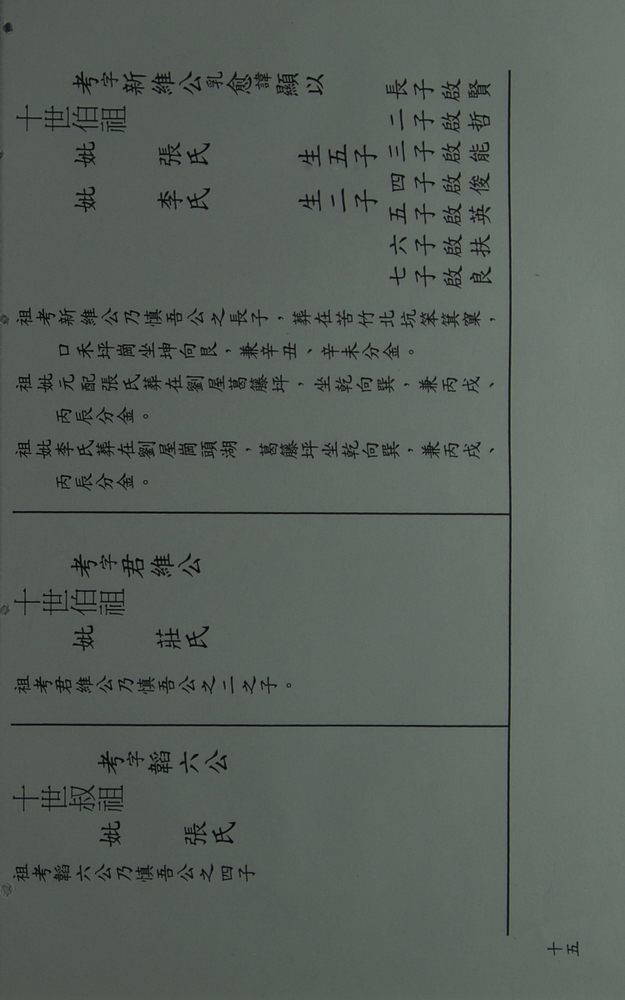 考字新維公乳愈諱顯以
十世伯祖
妣 張氏 生五子
妣 李氏 生二子
長子啟賢
二子啟哲
三子啟能
四子啟俊
五子啟英
六子啟扶
七子啟良
祖考新維公乃慎吾公之長子，葬在苦竹北坑笨箕窠，
口禾坪崗坐坤向艮，兼辛丑、辛未分金。
祖妣元配張氏葬在劉屋葛藤坪，坐乾向巽，兼丙戌、
丙辰分金。
祖妣李氏葬在劉屋崗頭湖，葛藤坪坐乾向巽，兼丙戌、
丙辰分金。
考字君維公
十世伯祖
妣 莊氏
祖考君維公乃慎吾公之二之子。
考字韜六公
十世叔祖
妣 張氏
祖考韜六公乃慎吾公之四子
十五